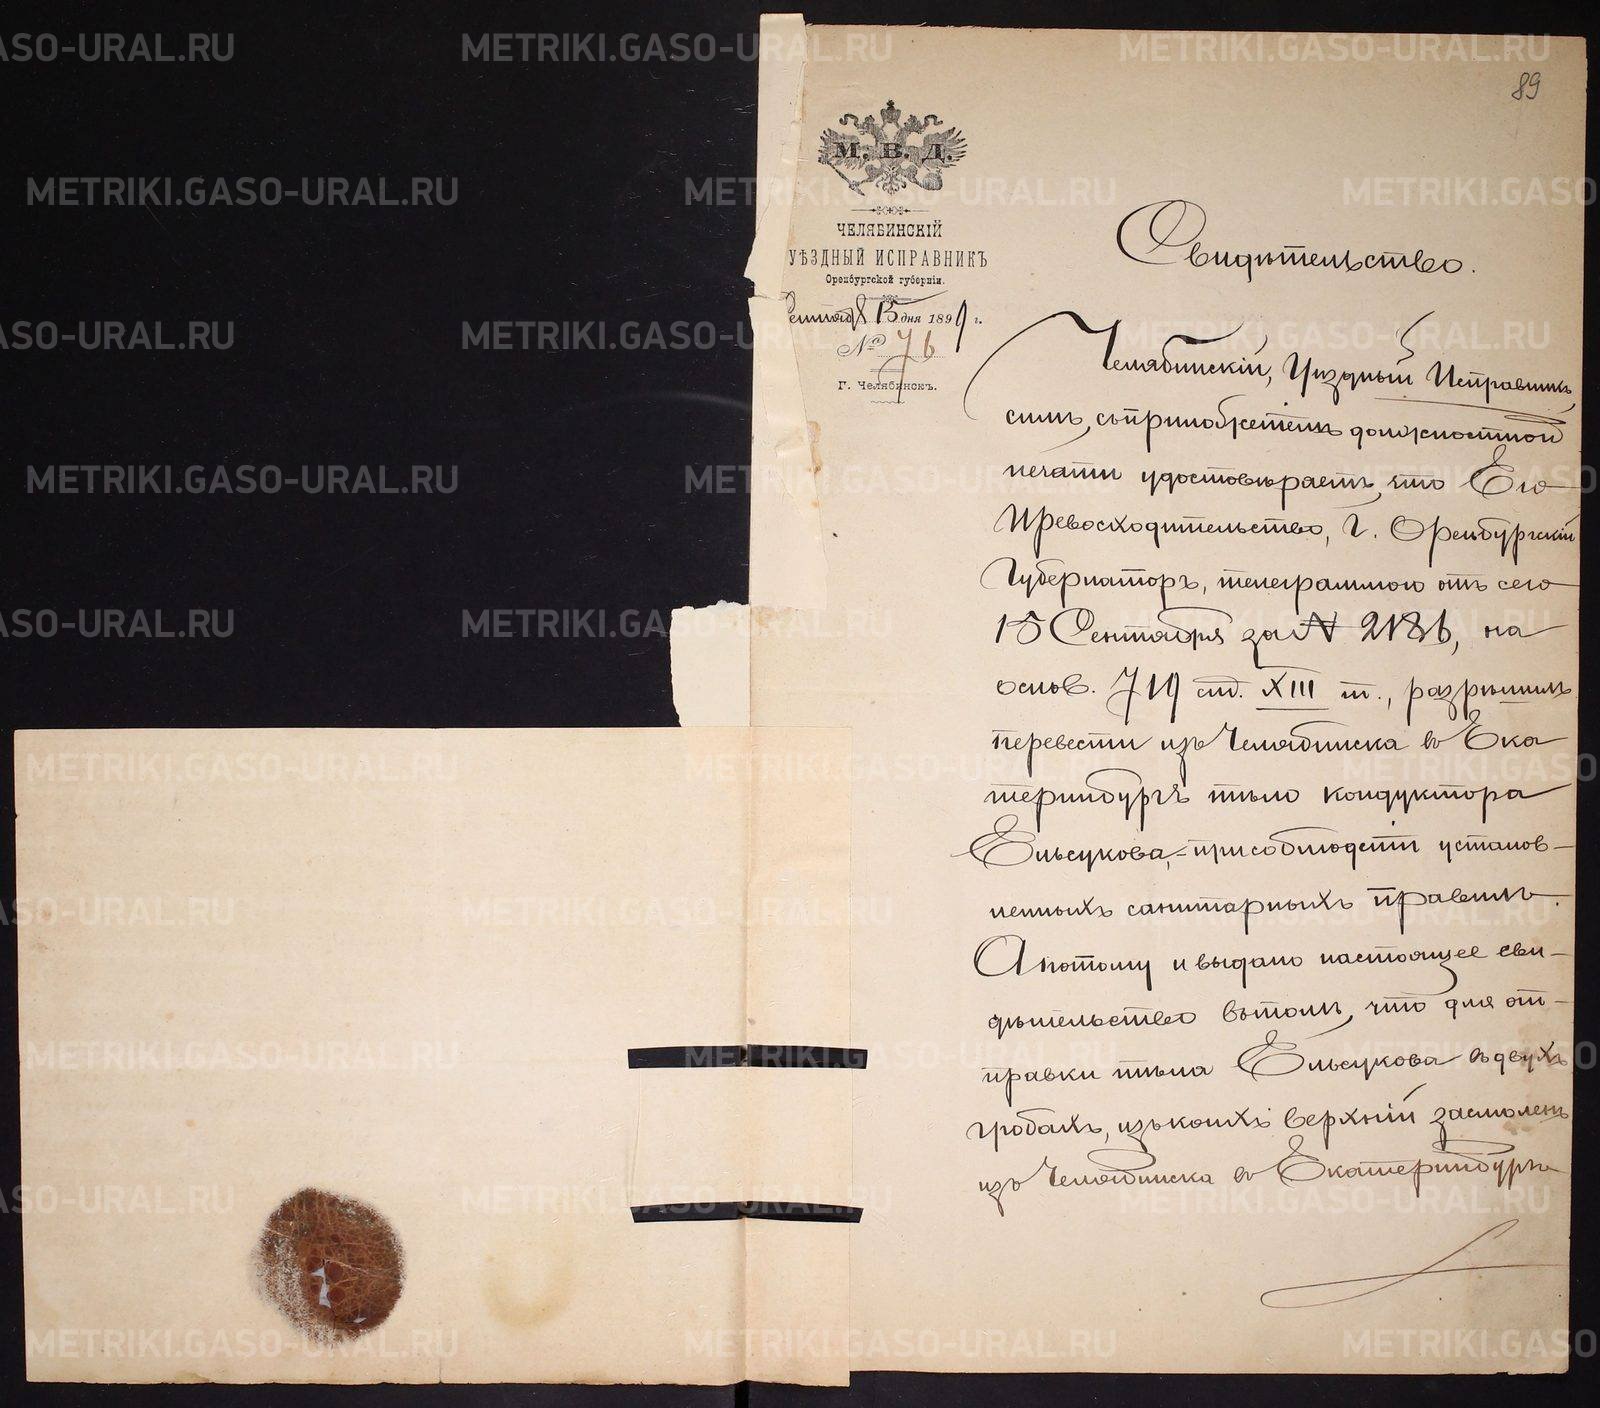 89
М. В. Д.
ЧЕЛЯБИНСКІЙ
УѢЗДНЫЙ ИСПРАВНИКЪ
Оренбургской губерніи.
Сентября 15 дня 1899 г.
№ 76
Г. Челябинскъ.
Свидѣтельство.
Челябинскій, Уѣздный Исправникъ,
симъ, съ приложеніемъ должностной
печати удостовѣряетъ, что Его
Превосходительство, Г. Оренбургскій
Губернаторъ, телеграммою отъ сего
15 Сентября за № 2186, на
основ. 719 ст. XIII т., разрѣшилъ
перевести изъ Челябинска въ Ека
теринбургъ тѣло кондуктора
Ельсукова, при соблюденіи установ–
ленныхъ санитарныхъ правилъ.
А потому и выдано настоящее сви–
дѣтельство въ томъ, что для от–
правки тѣла Ельсукова въ двухъ
гробахъ, изъ коихъ верхній засмоленъ
изъ Челябинска въ Екатеринбургъ
METRIKI.GASO-URAL.RU